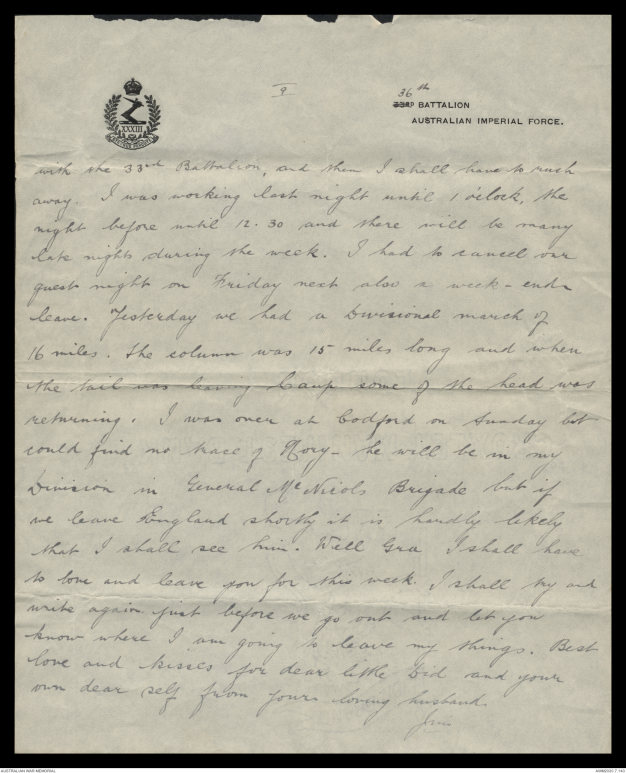 9
36th
33RD BATTALION
AUSTRALIAN IMPERIAL FORCE.
XXXIII
with the 33rd Battalion, and then I shall have to rush
away. I was working last night until 1 o'clock, the
night before until 12.30 and there will be many
late nights during the week. I had to cancel our
guest night on Friday next also a week-end
leave. Yesterday we had a Divisional march of
16 miles. The column was 15 miles long and when
the tail was leaving Camp some of the head was
returning. I was over at Codford on Sunday but
could find no trace of Rory - he will be in my
Division in General McNicols Brigade but if
we leave England shortly it is hardly likely
that I shall see him. Well Gra I shall have
to love and leave you for this week. I shall try and
write again just before we go out and let you
know where I am going to leave my things. Best
love and kisses for dear little Did and your
own dear self from your loving husband
Jim
AUSTRALIAN WAR MEMORIAL